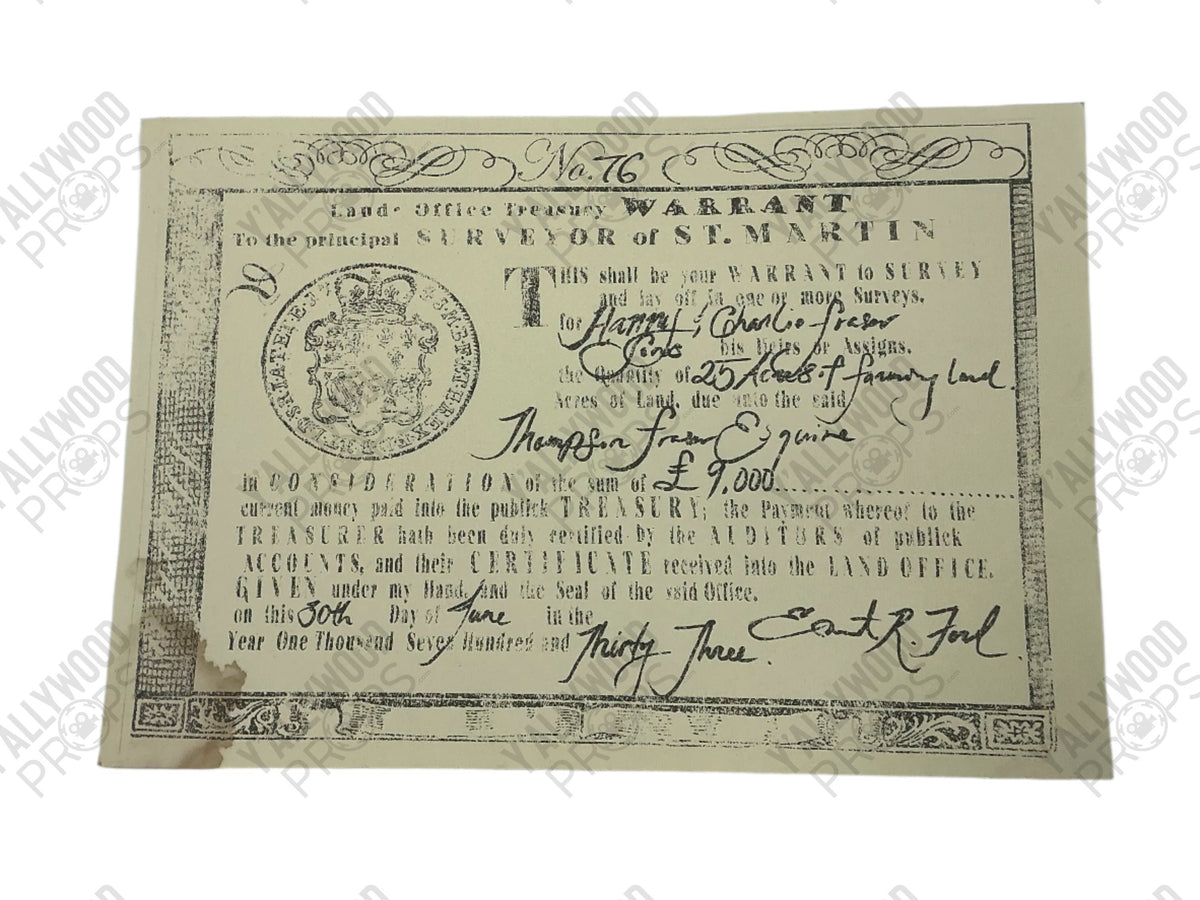 No. 76
Lands Office Treasury WARRANT
To the principal SURVEYOR of ST. MARTIN
THIS shall be your WARRANT to SURVEY
and lay off in one or more Surveys,
for Harry & Charlie fraser
Sons his Heirs or Assigns,
the Quantity of 25 Acres of farming land.
Acres of Land, due unto the said
Thompson fraser Esquire
in CONSIDERATION of the sum of £ 9,000
current money paid into the publick TREASURY; the Payment whereof to the
TREASURER hath been duly certified by the AUDITORS of publick
ACCOUNTS, and their CERTIFICATE received into the LAND OFFICE.
GIVEN under my Hand, and the Seal of the said Office.
on this 30th Day of June in the
Year One Thousand Seven Hundred and Thirty Three. R. Ford
Y'ALLYWOOD
PROPS